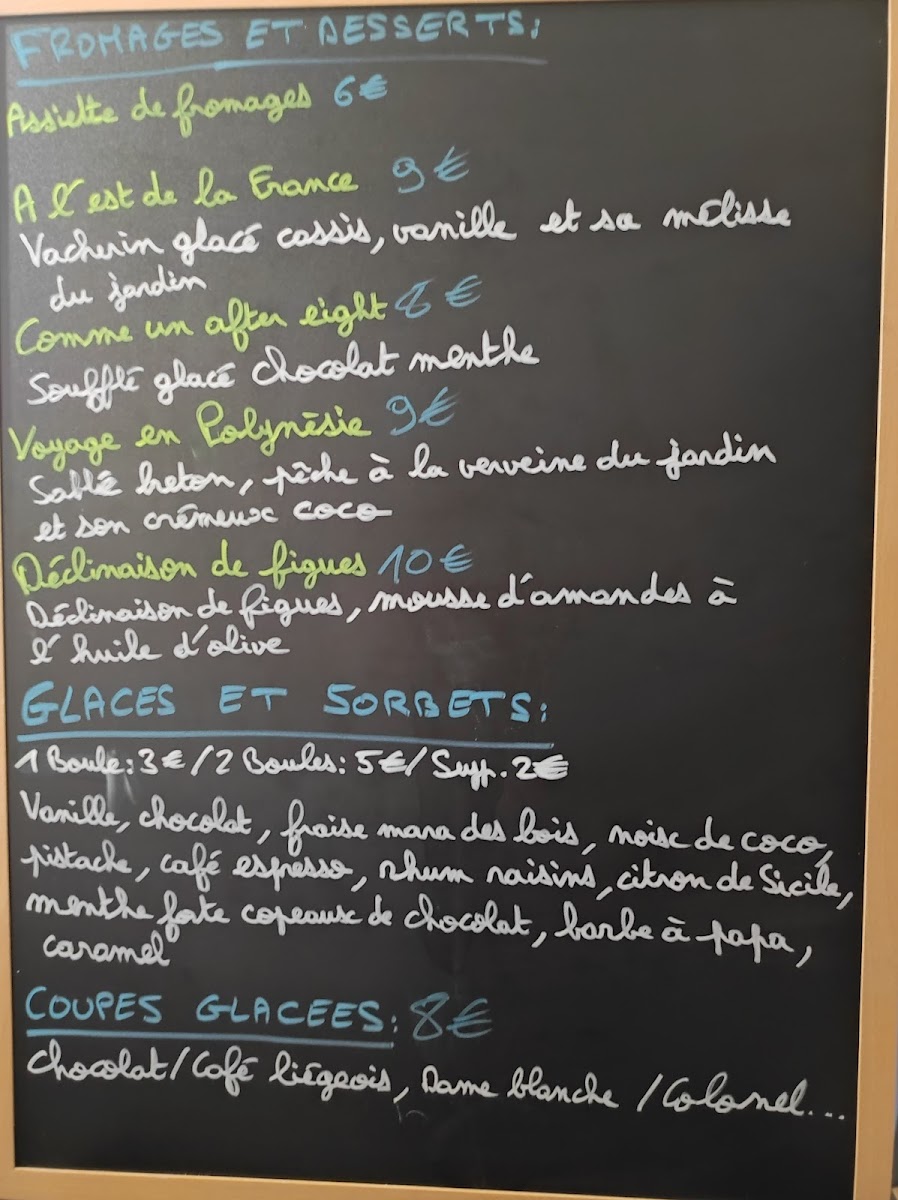 FROMAGES ET DESSERTS:
Assiette de fromages 6€
A l'est de la France 9€
Vacherin glacé cassis, vanille et sa mélisse
du jardin
Comme un after eight 8€
Soufflé glacé chocolat menthe
Voyage en Polynésie 9€
Sablé breton, pêche à la verveine du jardin
et son crémeux coco
Déclinaison de figues 10€
Déclinaison de figues, mousse d'amandes à
l'huile d'olive
GLACES ET SORBETS:
1 Boule: 3€ / 2 Boules: 5€ / Supp. 2€
Vanille, chocolat, fraise mara des bois, noix de coco,
pistache, café espresso, rhum raisins, citron de Sicile,
menthe forte copeaux de chocolat, barbe à papa,
caramel
COUPES GLACEES: 8€
Chocolat / Café liégeois, Dame blanche / Colonel...